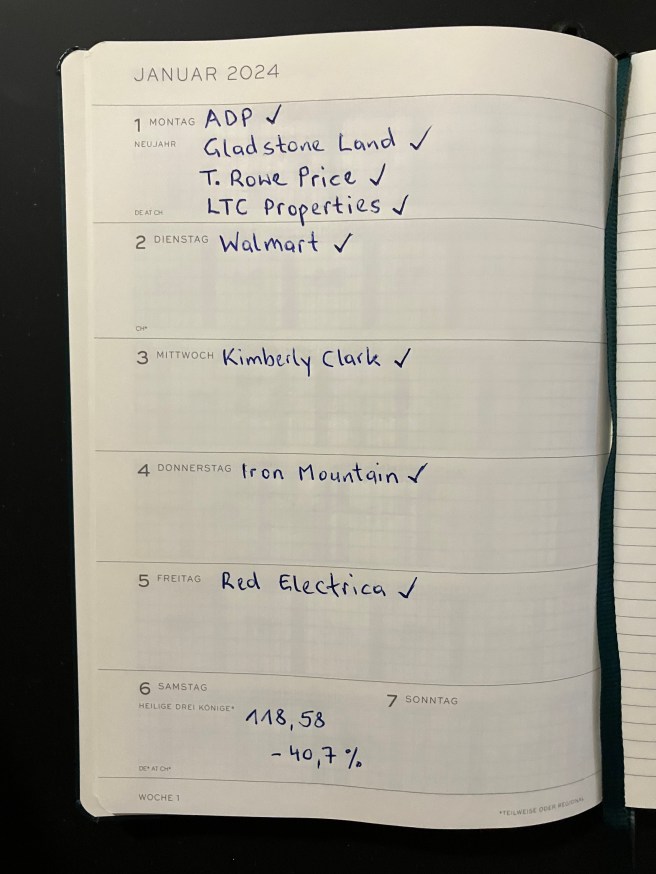 JANUAR 2024
1 MONTAG ADP ✓
NEUJAHR Gladstone Land ✓
T. Rowe Price ✓
DE AT CH LTC Properties ✓
2 DIENSTAG Walmart ✓
CH*
3 MITTWOCH Kimberly Clark ✓
4 DONNERSTAG Iron Mountain ✓
5 FREITAG Red Electrica ✓
6 SAMSTAG
HEILIGE DREI KÖNIGE*
118,58
-40,7 %
DE* AT CH*
7 SONNTAG
WOCHE 1
*TEILWEISE ODER REGIONAL